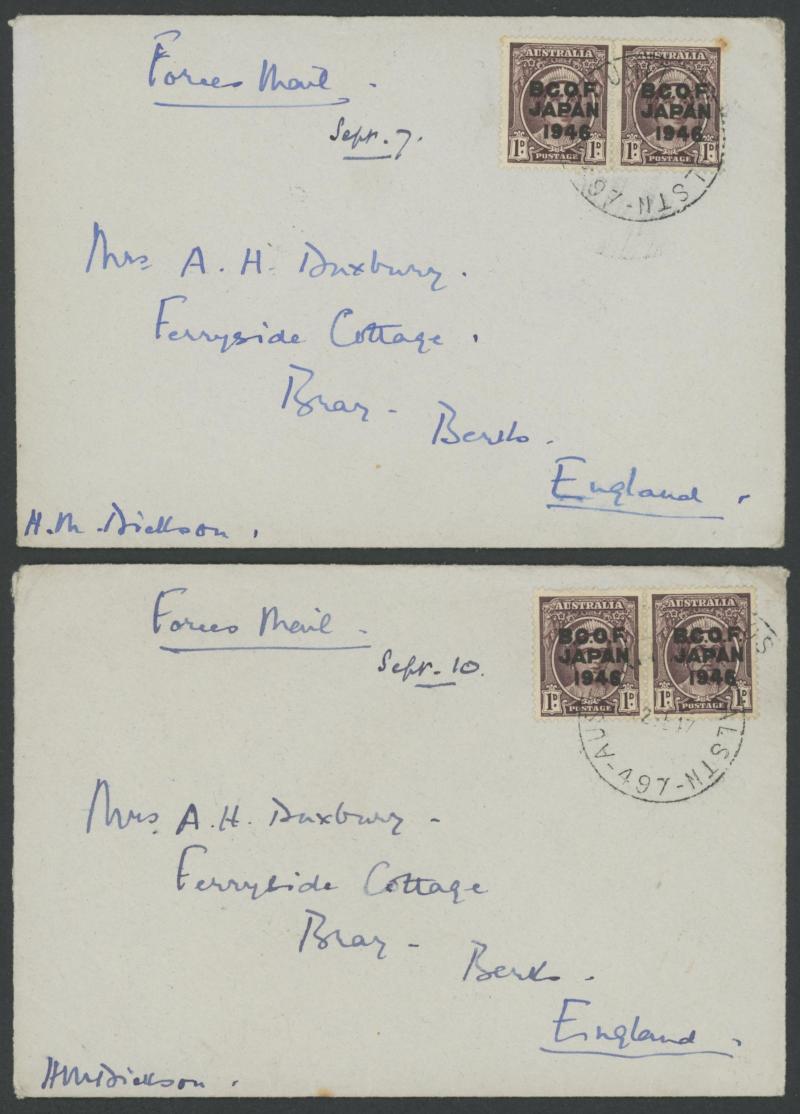 Forces Mail.
Sept. 7.
AUSTRALIA AUSTRALIA
B.C.O.F. B.C.O.F.
JAPAN JAPAN
1946 1946
1D 1D 1D 1D
POSTAGE POSTAGE
LSTN-
Mrs A. H. Duxbury.
Ferryside Cottage.
Bray-
Berks.
England.
H. M. Dickson.
Forces Mail-
Sept-10.
AUSTRALIA AUSTRALIA
B.C.O.F. B.C.O.F.
JAPAN JAPAN
1946 1946
1D 1D 1D 1D
POSTAGE POSTAGE
AU -497- ALSTN
Mrs. A.H. Duxbury-
Ferryside Cottage
Bray-
Berks-
England.
HMDickson.